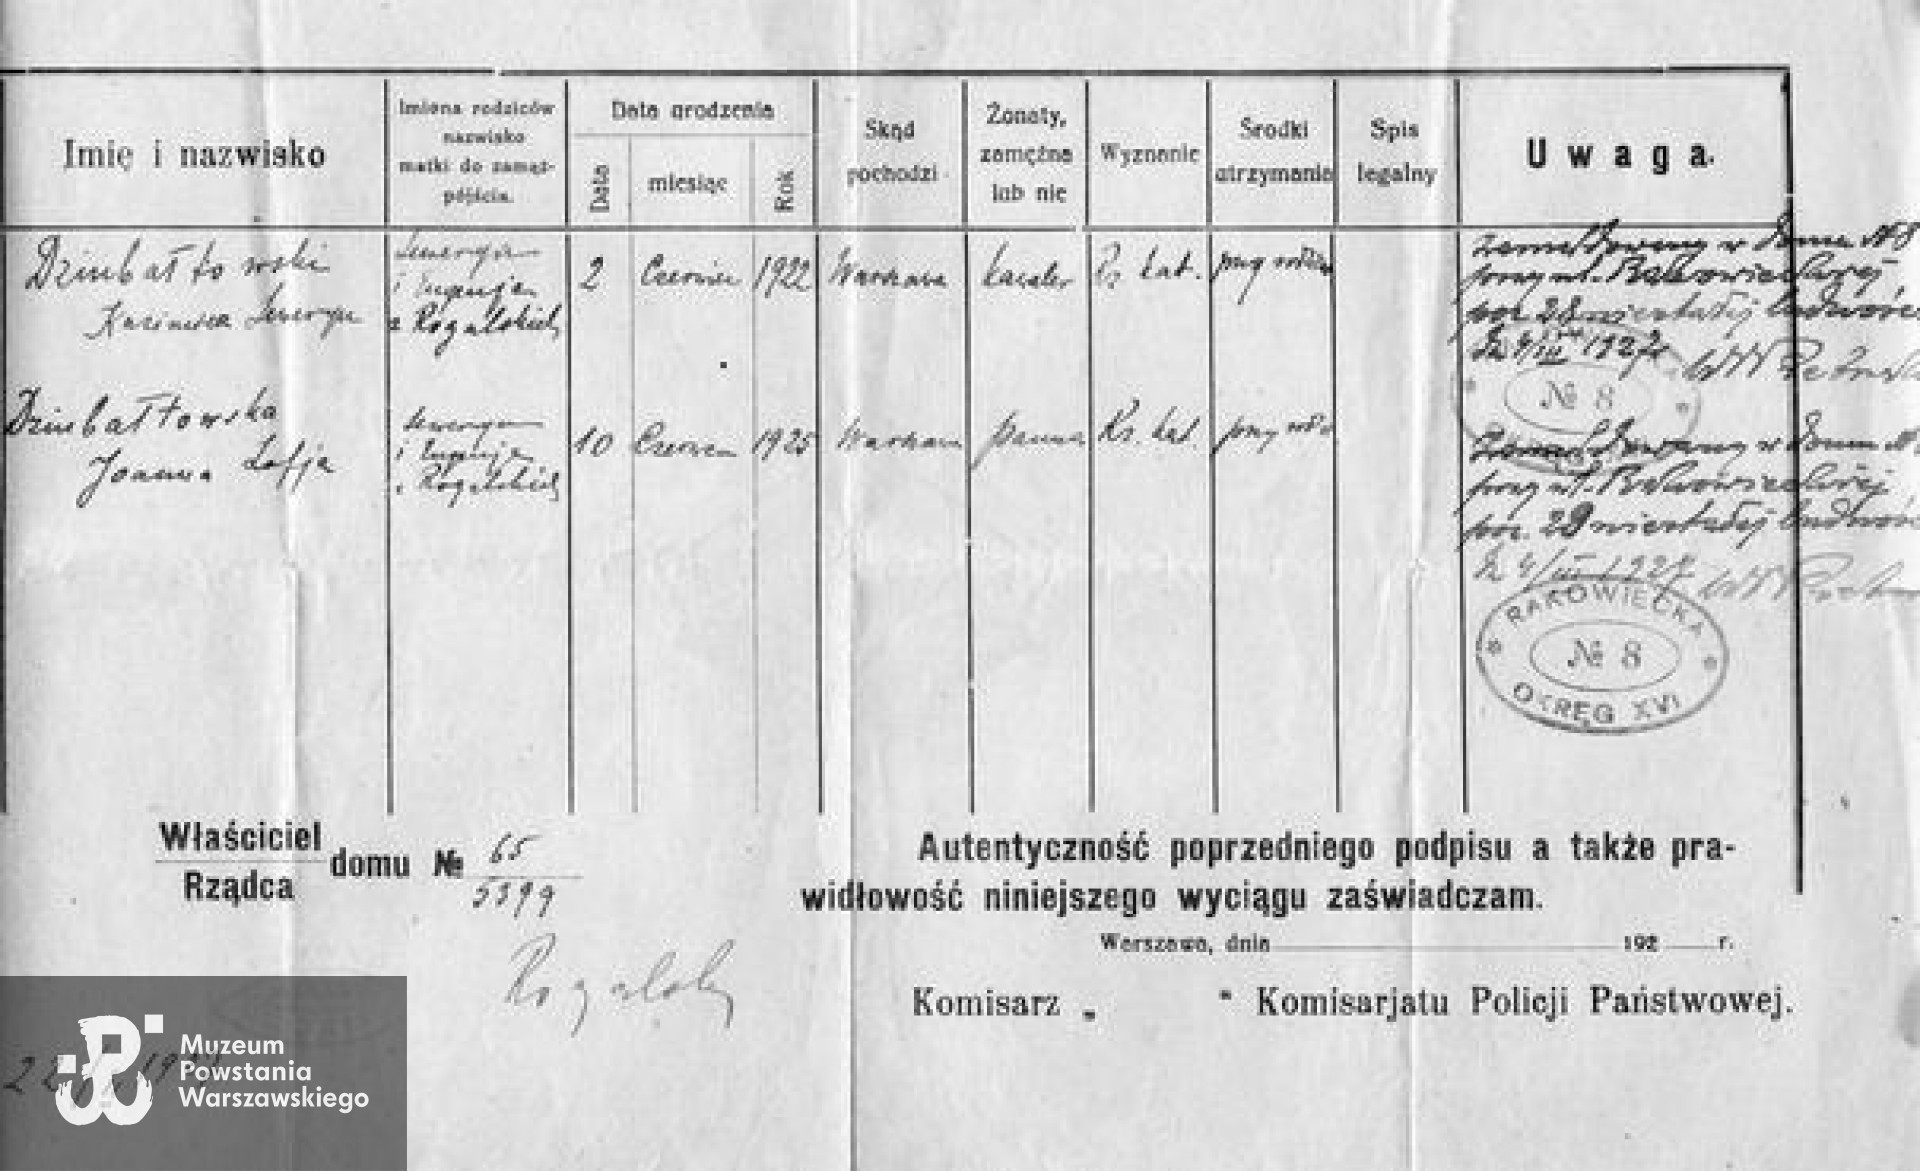 Imię i nazwisko
Imiona rodziców
nazwisko
matki do zamąż-
pójścia.
Data urodzenia
Data
miesiąc
Rok
Skąd
pochodzi
Żonaty,
zamężna
lub nie
Wyznanie
Środki
utrzymania
Spis
legalny
Uwaga.
Dziubałtowski
Kazimierz Seweryn
Seweryn
i Eugenja
z Rogalskich
2
Czerwiec
1922
Warszawa
kawaler
Rz. kat.
przy rodzic
zameldowany w domu № 8
przy ul. Rakowieckiej,
poz. 28 niestałej ludności
Dn 4/III 1927
№ 8
Dziubałtowska
Joanna Zofja
Seweryn
i Eugenja
z Rogalskich
10
Czerwiec
1925
Warszawa
panna
Rz. kat.
przy rodz
zameldowany w domu №
przy ul. Rakowieckiej,
poz. 29 niestałej ludnoś
Dn 4/III 1927
RAKOWIECKA
№ 8
OKRĘG XVI
Właściciel
Rządca
domu №
65
5399
Rogalski
Autentyczność poprzedniego podpisu a także pra-
widłowość niniejszego wyciągu zaświadczam.
Warszawa, dnia 192 r.
Komisarz „ " Komisarjatu Policji Państwowej.
Muzeum
Powstania
Warszawskiego